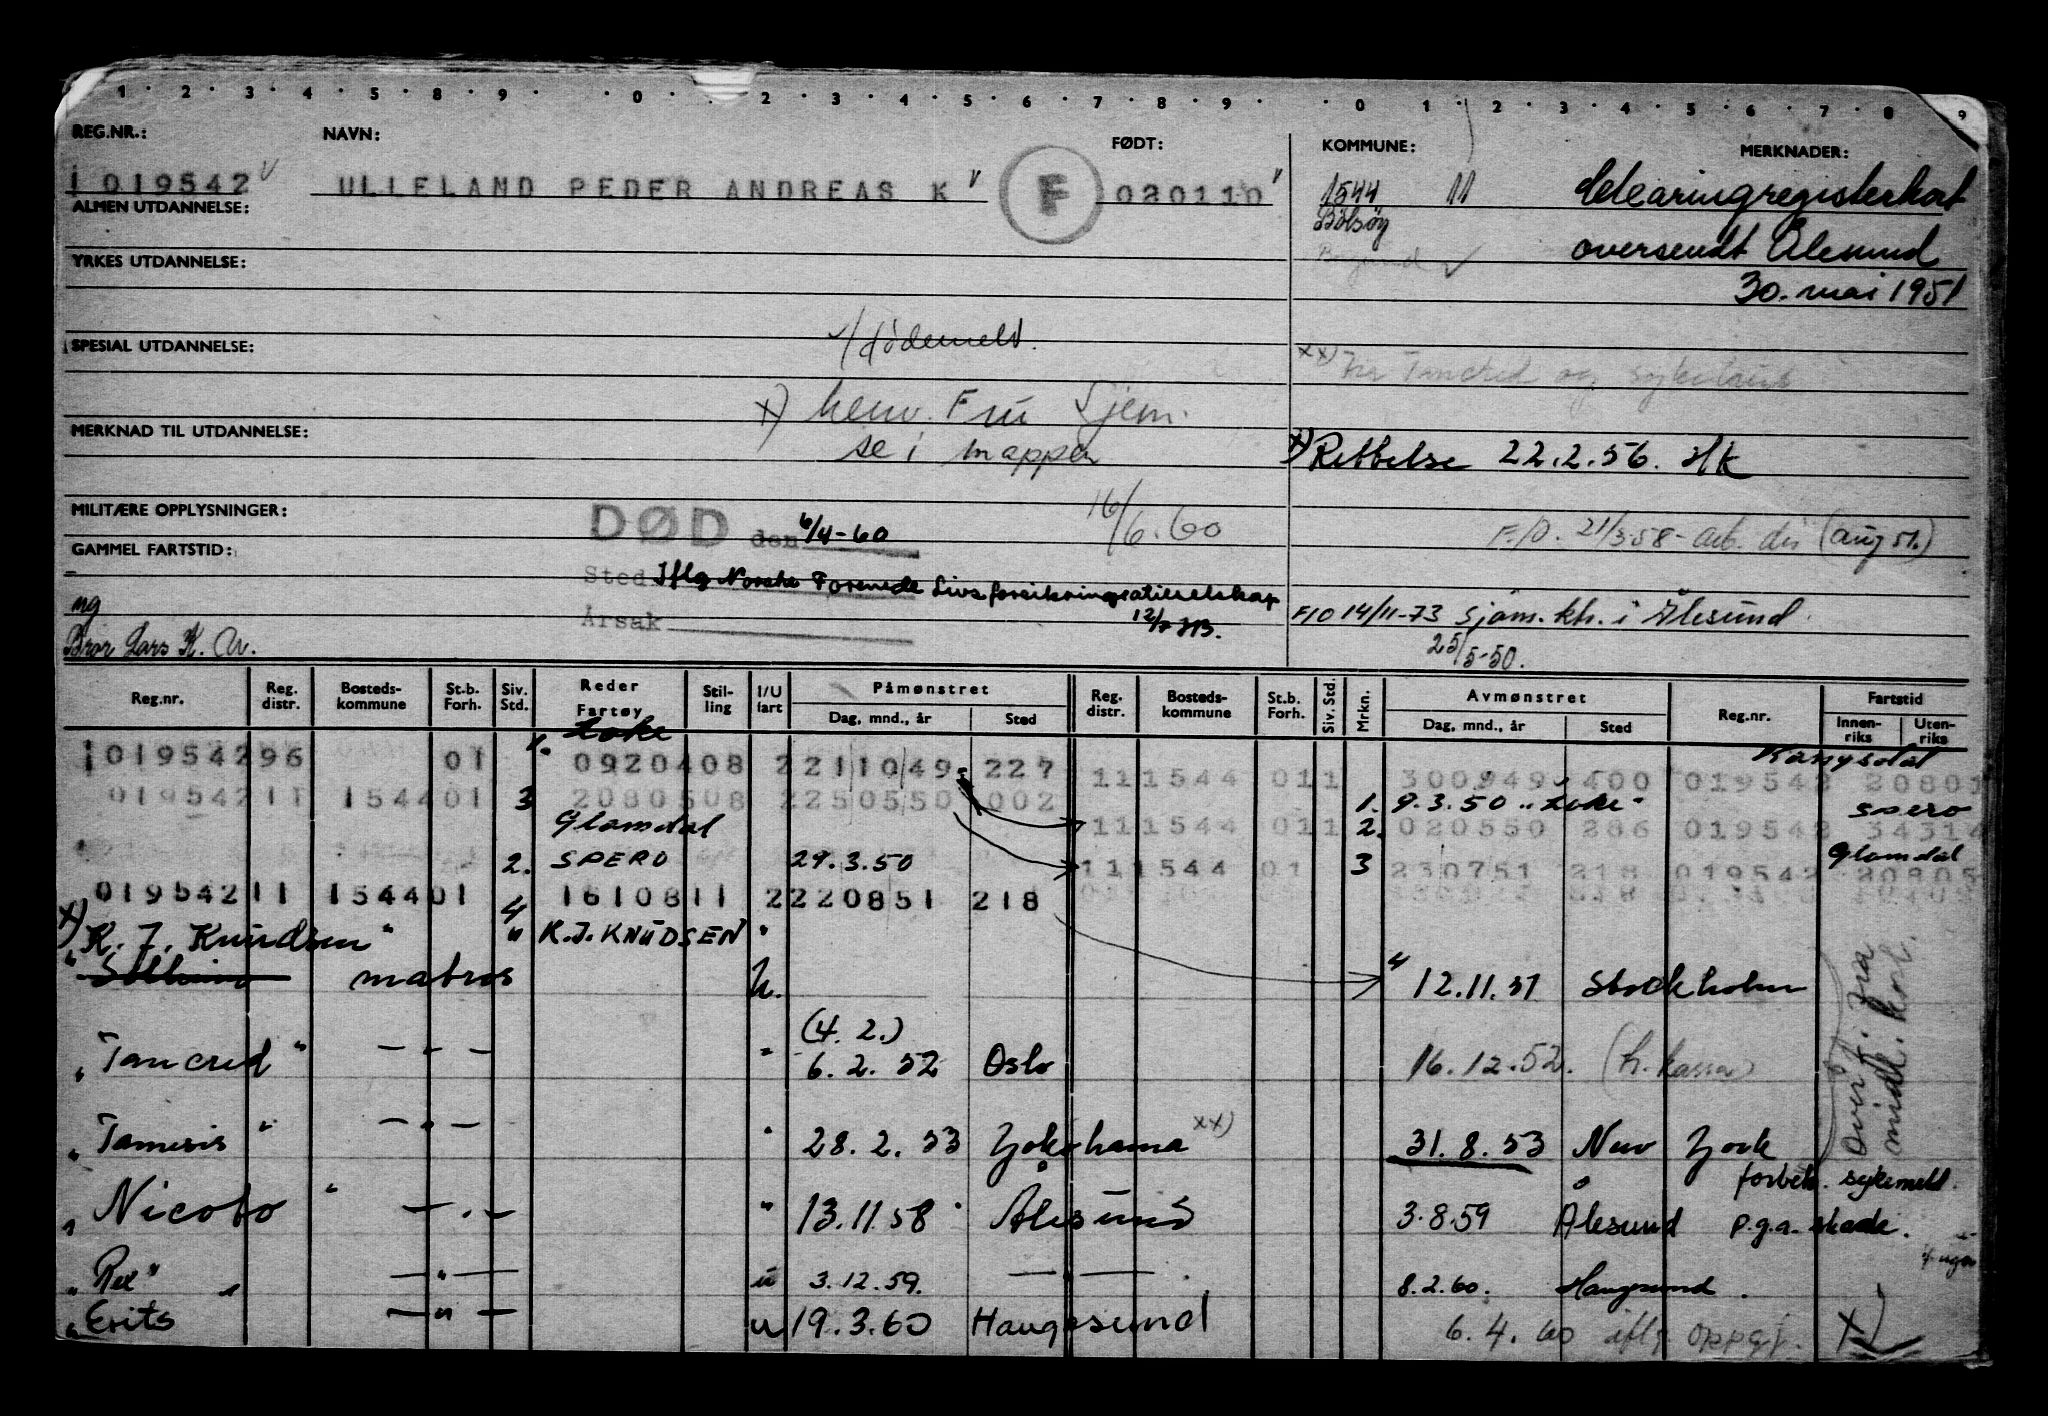 1 2 3 4 5 6 7 8 9 0 1 2 3 4 5 6 7 8 9 0 1 2 3 4 5 6 7 8 9
REG.NR.: NAVN: FØDT: KOMMUNE: MERKNADER:
1019542 ULLELAND PEDER ANDREAS K F 020110 1544 11 Clearingregisterkort
ALMEN UTDANNELSE: Bolsøy
oversendt Ålesund
YRKES UTDANNELSE:
30. mai 1951
dødemeld.
SPESIAL UTDANNELSE:
xx) Tancred og sykelønn
x) henv. Fru Sjem.
MERKNAD TIL UTDANNELSE:
se i mappen
x) Rettelse 22.2.56. HK
MILITÆRE OPPLYSNINGER:
DØD den 6/4-60 16/6.60
F/O. 21/3-58 - arb. dir (aug 51.)
GAMMEL FARTSTID:
Sted Iflg Norske Forenede Livsforsikringsaktieselskap
ng
Årsak 12/7 HB.
F/O 14/11-73 Sjøm. ktr. i Ålesund
Bror Lars K. U.
25/5-50.
Reg.nr. Reg. distr. Bosteds-kommune St.b. Forh. Siv. Std. Reder Fartøy Stil-ling I/U fart Påmønstret Reg. distr. Bosteds-kommune St.b. Forh. Siv. Std. Mrkn. Avmønstret Reg.nr. Fartstid
Dag, mnd., år Sted Dag, mnd., år Sted Innen-riks Uten-riks
Loke
101954296 01 1. 0920408 2211049 227
111544 011 300949 400 019542 20801
01954211 154401 3 2080508 2250550 002
1. 9.3.50 "Loke" Spero
Glomdal
111544 011 2. 020550 286 019542 34314
2. SPERO 29.3.50
111544 01 3 230751 218 019542 20805
Glomdal
01954211 154401 4 1610811 2220851 218
x) "K. J. Knudsen" " K.J. KNUDSEN "
"Solheim matros u. 4 12.11.51 Stockholm
(4. 2.)
"Tancred" — " — " 6. 2. 52 Oslo 16.12.52. (h. kassa)
"Tamesis" — " — " 28. 2. 53 Yokohama xx) 31. 8. 53 New York
Overf. fra midl. kort.
forbeh. sykemeld.
"Nicobo" — " — " 13.11.58 Ålesund 3.8.59 Ålesund p.g.a. skade.
"Rex" — " — u 3.12.59. — " — 8.2.60. Haugesund.
"Erits — " — u 19.3.60 Haugesund 6.4.60 iflg oppgf. x)